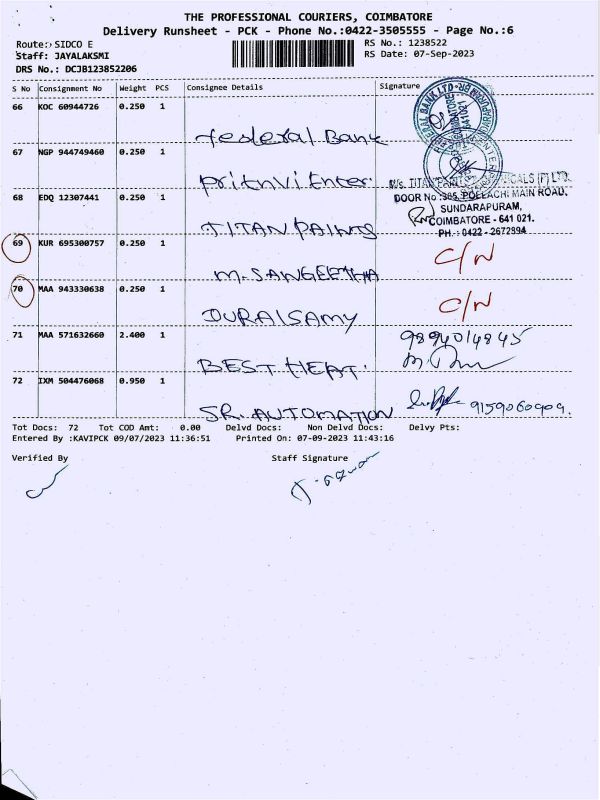 THE PROFESSIONAL COURIERS, COIMBATORE
Delivery Runsheet - PCK - Phone No.:0422-3505555 - Page No.:6
Route: SIDCO E
RS No.: 1238522
Staff: JAYALAKSMI
RS Date: 07-Sep-2023
DRS No.: DCJB123852206
S No Consignment No Weight PCS Consignee Details Signature
66 KOC 60944726 0.250 1
Federal Bank
67 NGP 944749460 0.250 1
Prithvi Enter.
M/s. TITAN
DOOR No :305, POLLACHI MAIN ROAD,
SUNDARAPURAM,
COIMBATORE - 641 021.
PH. : 0422 - 2672894
68 EDQ 12307441 0.250 1
TITAN PAINTS
69 KUR 695300757 0.250 1
C/N
M. SANGEETHA
70 MAA 943330638 0.250 1
C/N
DURAISAMY
71 MAA 571632660 2.400 1
9894014845
BEST HEAT.
72 IXM 504476068 0.950 1
9159060909.
SR. AUTOMATION
Tot Docs: 72 Tot COD Amt: 0.00 Delvd Docs: Non Delvd Docs: Delvy Pts:
Entered By :KAVIPCK 09/07/2023 11:36:51 Printed On: 07-09-2023 11:43:16
Verified By Staff Signature